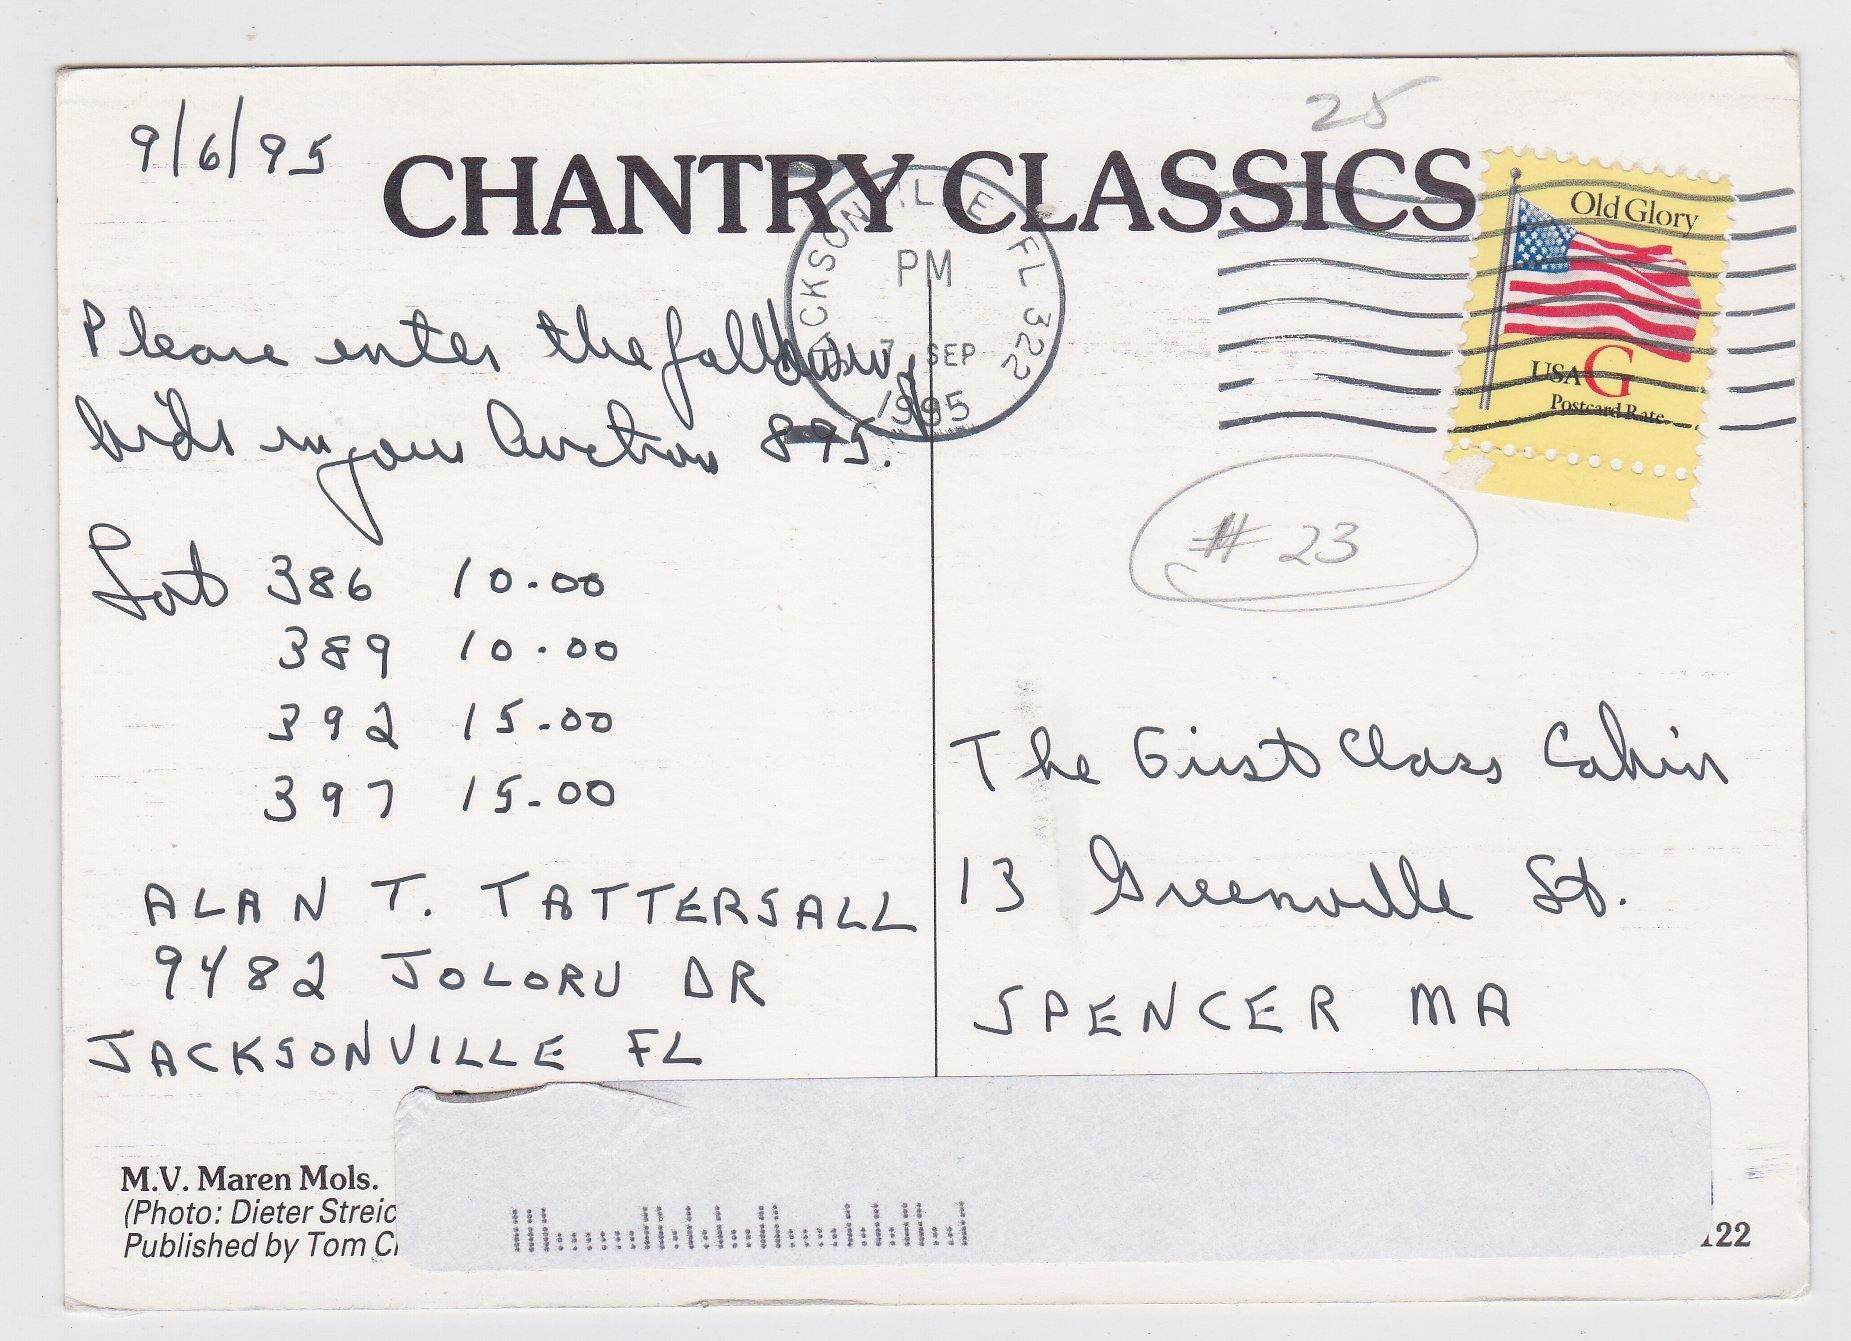 25
9/6/95
CHANTRY CLASSICS
JACKSONVILLE FL 322
PM
7 SEP
1995
Old Glory
USA G
Postcard Rate
Please enter the following
bids in your Auction 895.
Lot 386 10.00
389 10.00
392 15.00
397 15.00
ALAN T. TATTERSALL
9482 JOLORU DR
JACKSONVILLE FL
# 23
The First Class Cabin
13 Greenville St.
SPENCER MA
M.V. Maren Mols.
(Photo: Dieter Streic
Published by Tom C
122